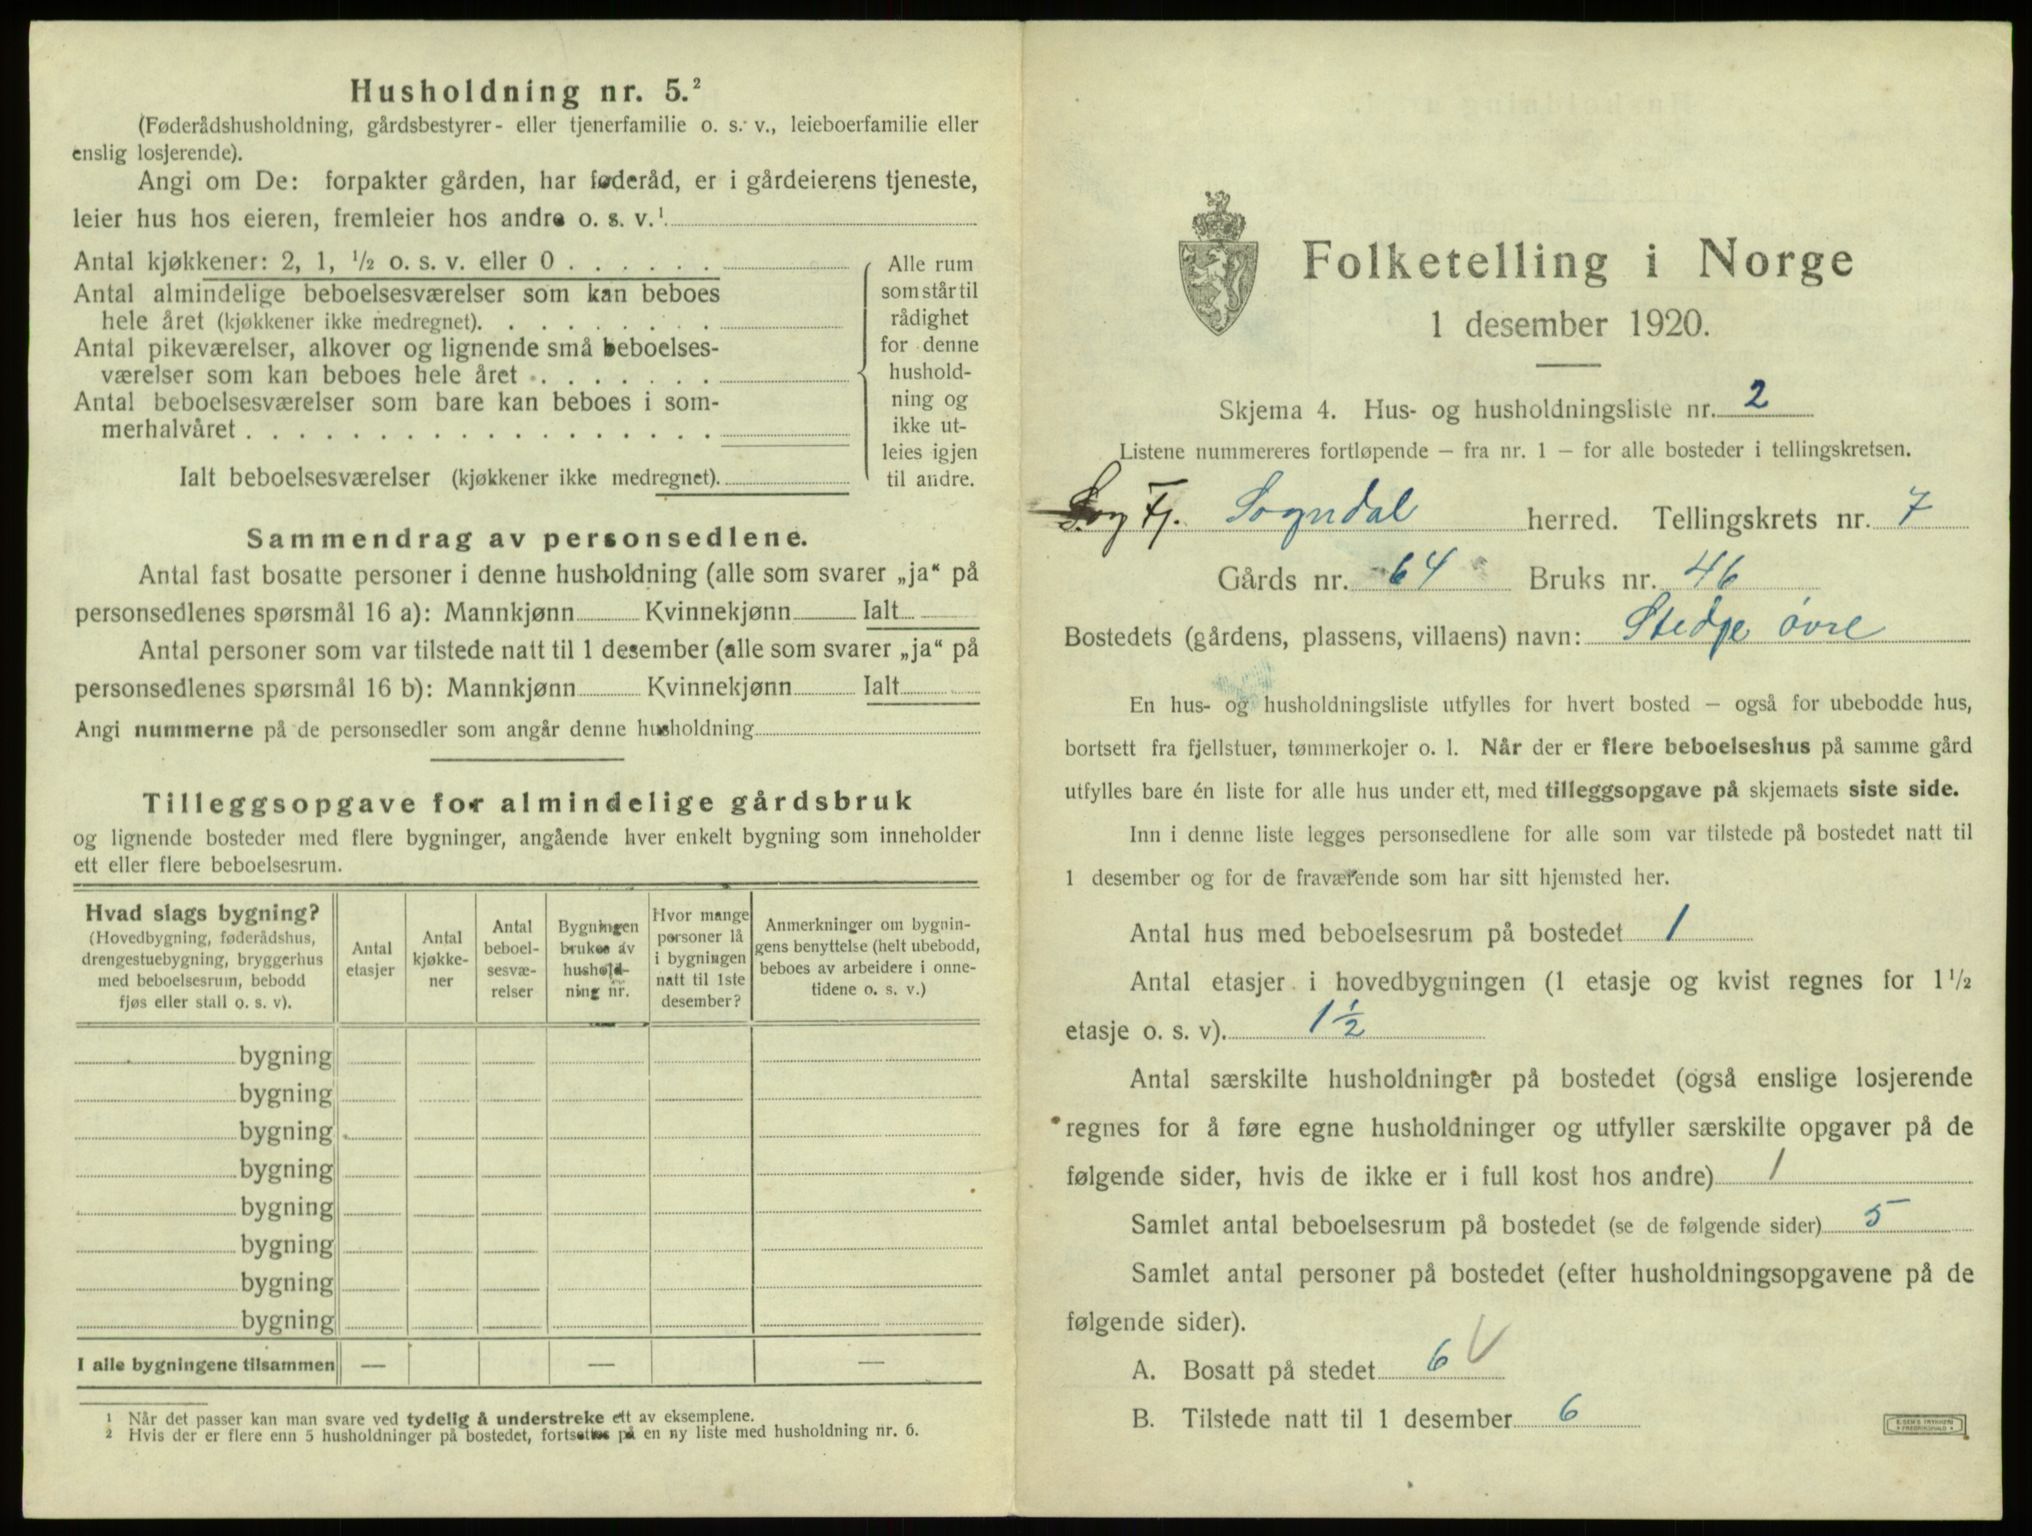 Husholdning nr. 5.²
(Føderådshusholdning, gårdsbestyrer- eller tjenerfamilie o. s. v., leieboerfamilie eller
enslig losjerende).
Angi om De: forpakter gården, har føderåd, er i gårdeierens tjeneste,
leier hus hos eieren, fremleier hos andre o. s. v.¹
Antal kjøkkener: 2, 1, ½ o. s. v. eller 0 . . . . . .
Antal almindelige beboelsesværelser som kan beboes
hele året (kjøkkener ikke medregnet). . . . . . . . .
Antal pikeværelser, alkover og lignende små beboelses-
værelser som kan beboes hele året . . . . . . .
Antal beboelsesværelser som bare kan beboes i som-
merhalvåret . . . . . . . . . . . . . . . . . .
Ialt beboelsesværelser (kjøkkener ikke medregnet).
Alle rum
som står til
rådighet
for denne
hushold-
ning og
ikke ut-
leies igjen
til andre.
Sammendrag av personsedlene.
Antal fast bosatte personer i denne husholdning (alle som svarer „ja“ på
personsedlenes spørsmål 16 a): Mannkjønn Kvinnekjønn Ialt
Antal personer som var tilstede natt til 1 desember (alle som svarer „ja“ på
personsedlenes spørsmål 16 b): Mannkjønn Kvinnekjønn Ialt
Angi nummerne på de personsedler som angår denne husholdning
Tilleggsopgave for almindelige gårdsbruk
og lignende bosteder med flere bygninger, angående hver enkelt bygning som inneholder
ett eller flere beboelsesrum.
Hvad slags bygning?
(Hovedbygning, føderådshus,
drengestuebygning, bryggerhus
med beboelsesrum, bebodd
fjøs eller stall o. s. v).
Antal
etasjer
Antal
kjøkke-
ner
Antal
beboel-
sesvæ-
relser
Bygningen
brukes av
hushold-
ning nr.
Hvor mange
personer lå
i bygningen
natt til 1ste
desember?
Anmerkninger om bygnin-
gens benyttelse (helt ubebodd,
beboes av arbeidere i onne-
tidene o. s. v.)
bygning
bygning
bygning
bygning
bygning
bygning
bygning
bygning
I alle bygningene tilsammen — — —
¹ Når det passer kan man svare ved tydelig å understreke ett av eksemplene.
² Hvis der er flere enn 5 husholdninger på bostedet, fortsettes på en ny liste med husholdning nr. 6.
Folketelling i Norge
1 desember 1920.
Skjema 4. Hus- og husholdningsliste nr. 2
Listene nummereres fortløpende — fra nr. 1 — for alle bosteder i tellingskretsen.
Sog Fj. Sogndal herred. Tellingskrets nr. 7
Gårds nr. 64 Bruks nr. 46
Bostedets (gårdens, plassens, villaens) navn: Stedje øvre
En hus- og husholdningsliste utfylles for hvert bosted — også for ubebodde hus,
bortsett fra fjellstuer, tømmerkojer o. l. Når der er flere beboelseshus på samme gård
utfylles bare én liste for alle hus under ett, med tilleggsopgave på skjemaets siste side.
Inn i denne liste legges personsedlene for alle som var tilstede på bostedet natt til
1 desember og for de fraværende som har sitt hjemsted her.
Antal hus med beboelsesrum på bostedet 1
Antal etasjer i hovedbygningen (1 etasje og kvist regnes for 1½
etasje o. s. v). 1½
Antal særskilte husholdninger på bostedet (også enslige losjerende
regnes for å føre egne husholdninger og utfyller særskilte opgaver på de
følgende sider, hvis de ikke er i full kost hos andre) 1
Samlet antal beboelsesrum på bostedet (se de følgende sider) 5
Samlet antal personer på bostedet (efter husholdningsopgavene på de
følgende sider).
A. Bosatt på stedet 6 V
B. Tilstede natt til 1 desember 6